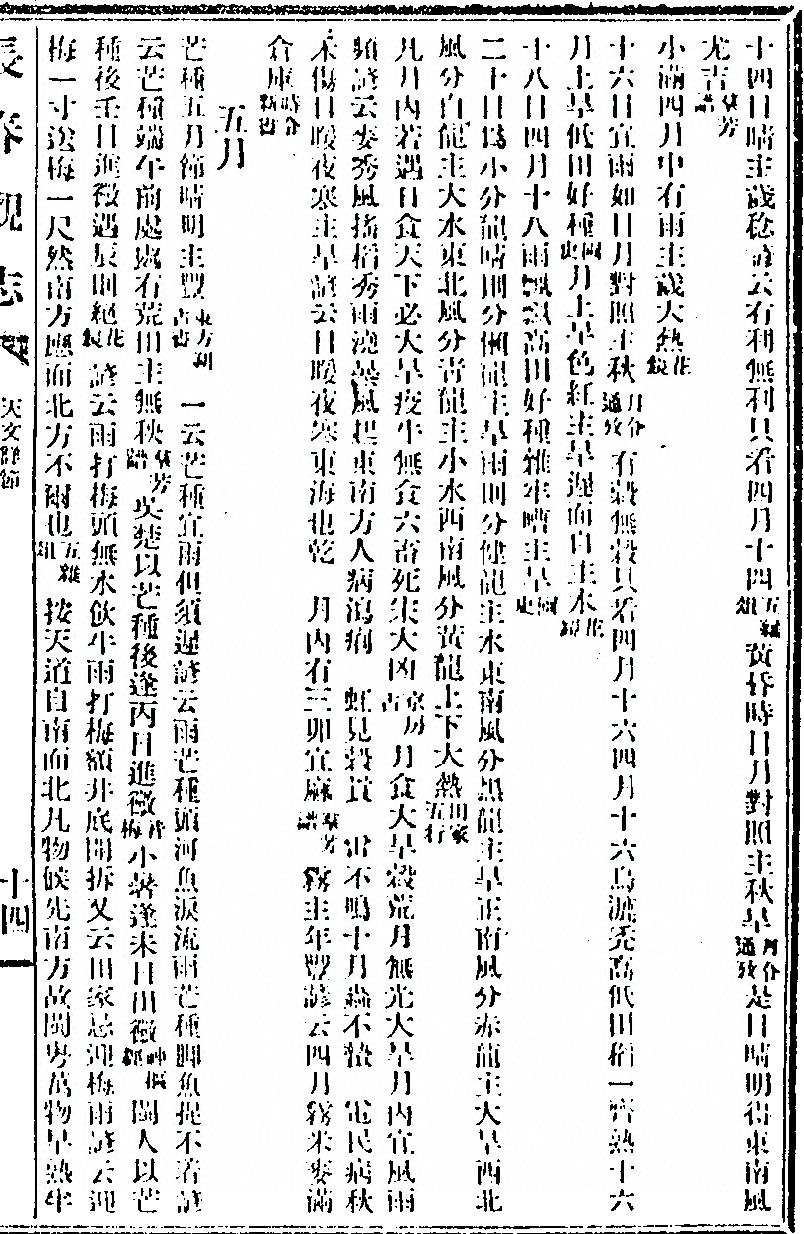 十四日晴主歲稔諺云有利無利只看四月十四五雜俎黃昏時日月對照主秋旱月令通攷是日晴明得東南風
尤吉羣芳譜
小滿四月中有雨主歲大熟花鏡
十六日宜雨如日月對照主秋月令通攷有穀無穀只看四月十六四月十六烏漉禿高低田稻一齊熟十六
月上早低田好種月上早色紅主旱遲而白主水花鏡
十八日四月十八雨飄飄高田好種雜 晴主旱
二十日爲小分龍晴則分懶龍主旱雨則分健龍主水東南風分黑龍主旱正南風分赤龍主大旱西北
風分白龍主大水東北風分青龍主小水西南風分黃龍上下大熱田家五行
凡月內若遇日食天下必大旱疫牛無食六畜死宋大凶京房占月食大旱穀荒月無光大旱月內宜風雨
頻諺云麥秀風搖稻秀雨澆暴風起東南方人病瀉痢 虹見穀貴 雷不鳴十月蟲不蟄 電民病秋
禾傷日暖夜寒主旱諺云日暖夜寒東海也乾 月內有三卯宜麻羣芳譜 霧主年豐諺云四月霧米麥滿
倉庫時令新
五月
芒種五月節晴明主豐東方朔占書 一云芒種宜雨但須遲諺云雨芒種頭河魚淚流雨芒種腳魚捉不著諺
云芒種端午前處處有荒田主無秋羣芳譜吳楚以芒種後逢丙日進黴 小暑逢未日出黴神樞 閩人以芒
種後壬日進黴遇辰則絕花鏡 諺云雨打梅頭無水飲牛雨打梅額井底開拆又云田家忌迎梅雨諺云迎
梅一寸送梅一尺然南方應而北方不爾也五雜俎 按天道自南而北凡物候先南方故閩粵萬物早熟半
長春觀志 天文 節 十四